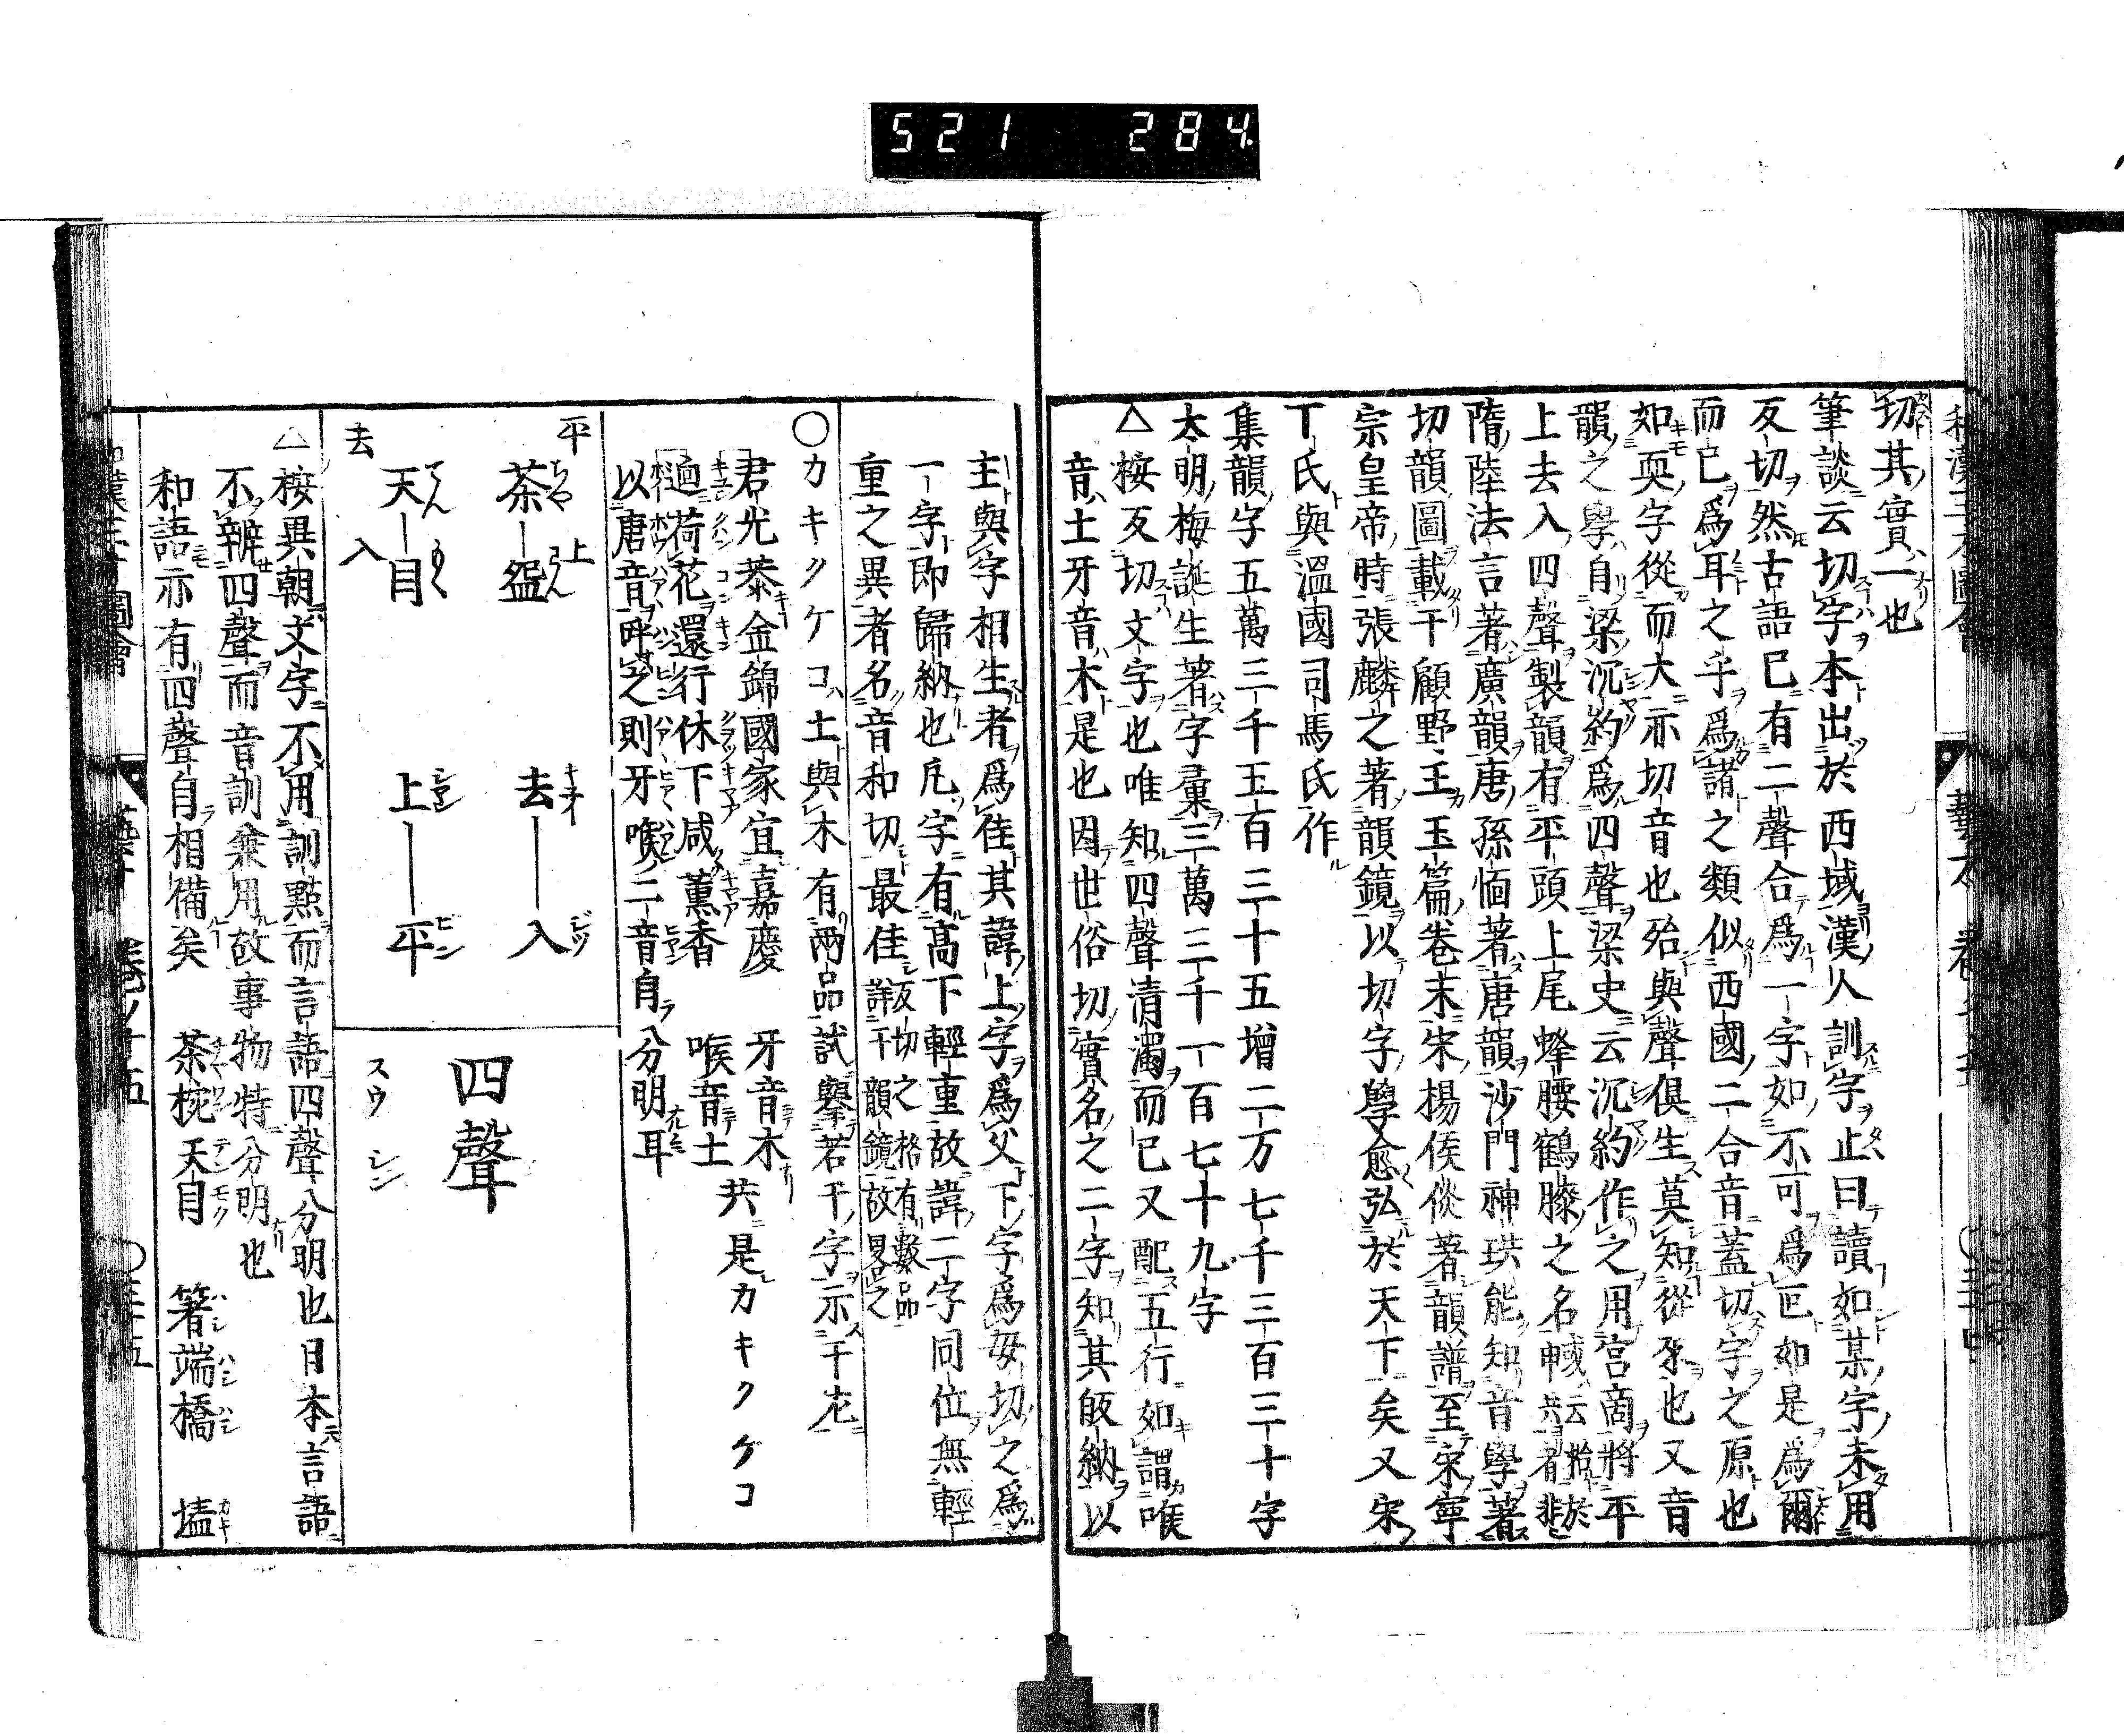 521 284
切其實一也
筆談云切字本出於西域漢人訓字止曰讀如某字未用
反切然古語已有二聲合爲一字如不可爲叵如是爲爾
而已爲耳之乎爲諸之類似西國二合音蓋切字之原也
如耎字從而大亦切音也殆與聲俱生莫知從來也又音
韻之學自梁沉約爲四聲梁史云沉約作之用宮商將平
上去入四聲製韻有平頭上尾蜂腰鶴膝之名
隋陸法言著廣韻唐孫愐著唐韻沙門神珙能知音學著
切韻圖載于顧野王玉篇卷末宋楊侯倓著韻譜至宋寧
宗皇帝時張麟之著韻鏡以切字學愈弘於天下矣又宋
丁氏與溫國司馬氏作
集韻字五萬三千五百三十五增二万七千三百三十字
太明梅誕生著字彙三萬三千一百七十九字
△按反切文字也唯知四聲清濁而已又配五行如謂喉
音土牙音木是也因世俗切實名之二字知其皈納以
主與字相生者爲佳其諱上字爲父下字爲母切之爲
一字即歸納也凡字有高下輕重故諱二字同位無輕
重之異者名音和切最佳詳于韻鏡故畧之
反切之格有數品
○カキクケコ土與木有兩品試擧若干字示于左
君光恭金錦國家宜嘉慶 牙音木
過荷花還行休下咸薫香 喉音土
共是カキクケコ
以唐音呼之則牙喉二音自分明耳
平 茶ちや 上 盌わん 去キヨイ 入ジツ
去 天てん 入 目もく 上シヤン 平ビン
四聲 スウ シン
△按異朝文字不用訓點而言語四聲分明也日本言語
不辨四聲而音訓兼用故事物特分明也
和語亦有四聲自相備矣 茶椀 天目 箸端橋 𡏄